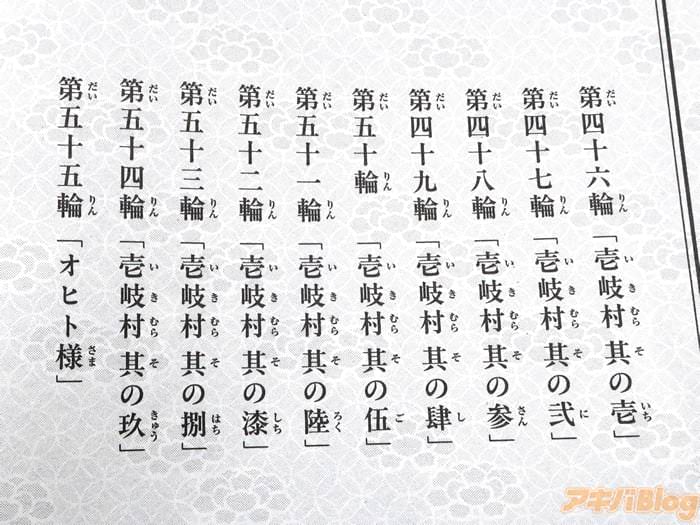 第四十六輪「壱岐村 其の壱」
第四十七輪「壱岐村 其の弐」
第四十八輪「壱岐村 其の参」
第四十九輪「壱岐村 其の肆」
第五十輪「壱岐村 其の伍」
第五十一輪「壱岐村 其の陸」
第五十二輪「壱岐村 其の漆」
第五十三輪「壱岐村 其の捌」
第五十四輪「壱岐村 其の玖」
第五十五輪「オヒト様」
アキバBlog